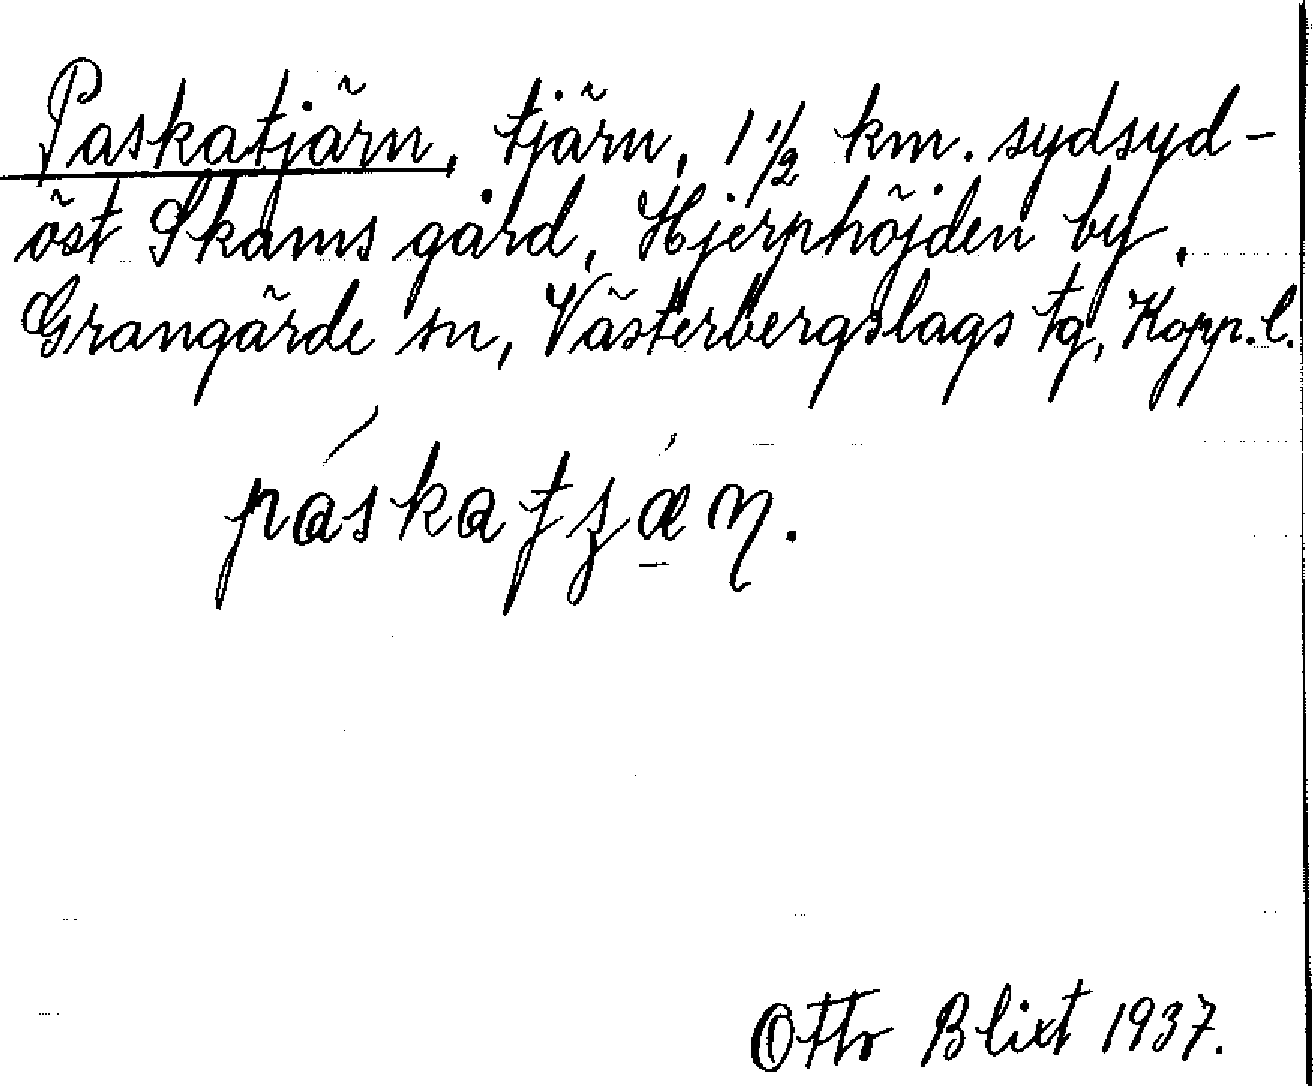 Paskatjärn, tjärn, 1 1/2 km. sydsyd-
öst Skams gård, Hjerphöjden by,
Grangärde sn, Västerbergslags tg, Kopp. l.
páskatʂǽ̠ɳ.
Otto Blixt 1937.